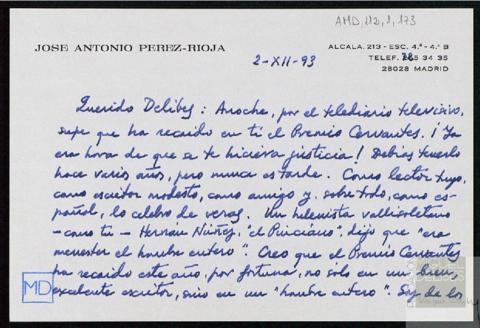 AMD, 112, 1, 173
JOSE ANTONIO PEREZ-RIOJA
ALCALA, 213 - ESC. 4.ª - 4.º B
TELEF. 35 35
28028 MADRID
2-XII-93
Querido Delibes: Anoche, por el telediario televisivo,
supe que ha recaído en ti el Premio Cervantes. ¡Ya
era hora de que se te hiciera justicia! Debías tenerlo
hace varios años, pero nunca es tarde. Como lector tuyo,
como escritor modesto, como amigo y, sobre todo, como es-
pañol, lo celebro de veras. Un helenista vallisoletano
-como tú- Hernán Núñez, "el Pinciano", dijo que "era
menester el hombre entero". Creo que el Premio Cervantes
ha recaído este año, por fortuna, no sólo en un bien,
excelente escritor, sino en un "hombre entero". Soy de los
MD